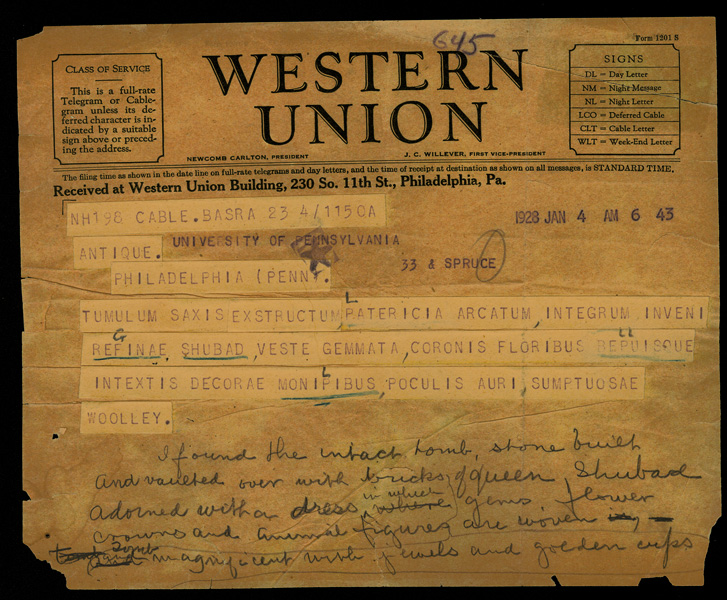 645
Form 1201 S
CLASS OF SERVICE
This is a full-rate
Telegram or Cable-
gram unless its de-
ferred character is in-
dicated by a suitable
sign above or preced-
ing the address.
WESTERN
UNION
NEWCOMB CARLTON, PRESIDENT
J. C. WILLEVER, FIRST VICE-PRESIDENT
SIGNS
DL = Day Letter
NM = Night Message
NL = Night Letter
LCO = Deferred Cable
CLT = Cable Letter
WLT = Week-End Letter
The filing time as shown in the date line on full-rate telegrams and day letters, and the time of receipt at destination as shown on all messages, is STANDARD TIME.
Received at Western Union Building, 230 So. 11th St., Philadelphia, Pa.
NH198 CABLE. BASRA 23 4/1150A
1928 JAN 4 AM 6 43
ANTIQUE. UNIVERSITY OF PENNSYLVANIA
33 & SPRUCE
PHILADELPHIA (PENN).
TUMULUM SAXIS EXSTRUCTUM LATERICIA ARCATUM, INTEGRUM INVENI
G LL
REFINAE SHUBAD, VESTE GEMMATA, CORONIS FLORIBUS BEPUISQUE
INTEXTIS DECORAE MONIPIBUS, POCULIS AURI, SUMPTUOSAE
L
WOOLLEY.
I found the intact tomb, stone built
and vaulted over with bricks of queen Shubad
adorned with a dress in which where gems flower
crowns and animal figures are woven
tomb magnificent with jewels and golden cups